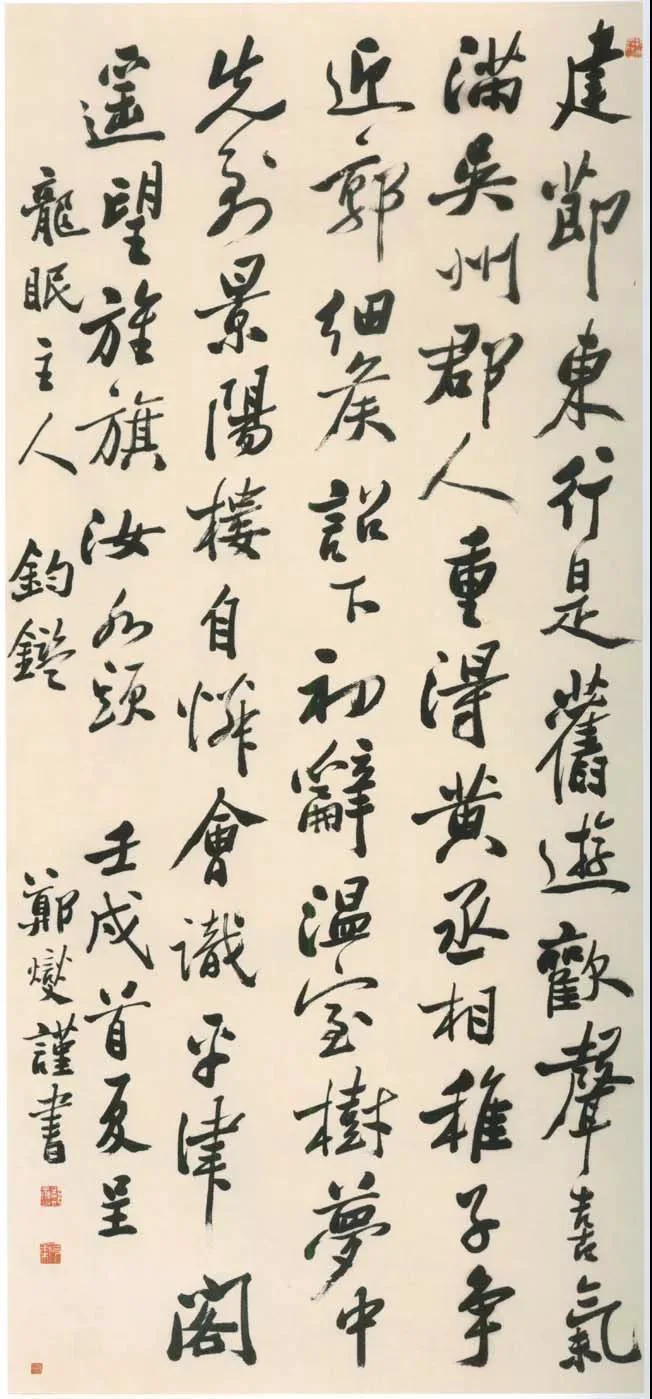 建節東行是舊遊歡聲喜氣
滿吳州郡人重得黃丞相稚子爭
近郭細侯詔下初辭溫室樹夢中
先到景陽樓自憐會識平津閣
遥望旌旗汝水頭 壬戌首夏呈
龍眠主人 鈞鑑 鄭燮謹書